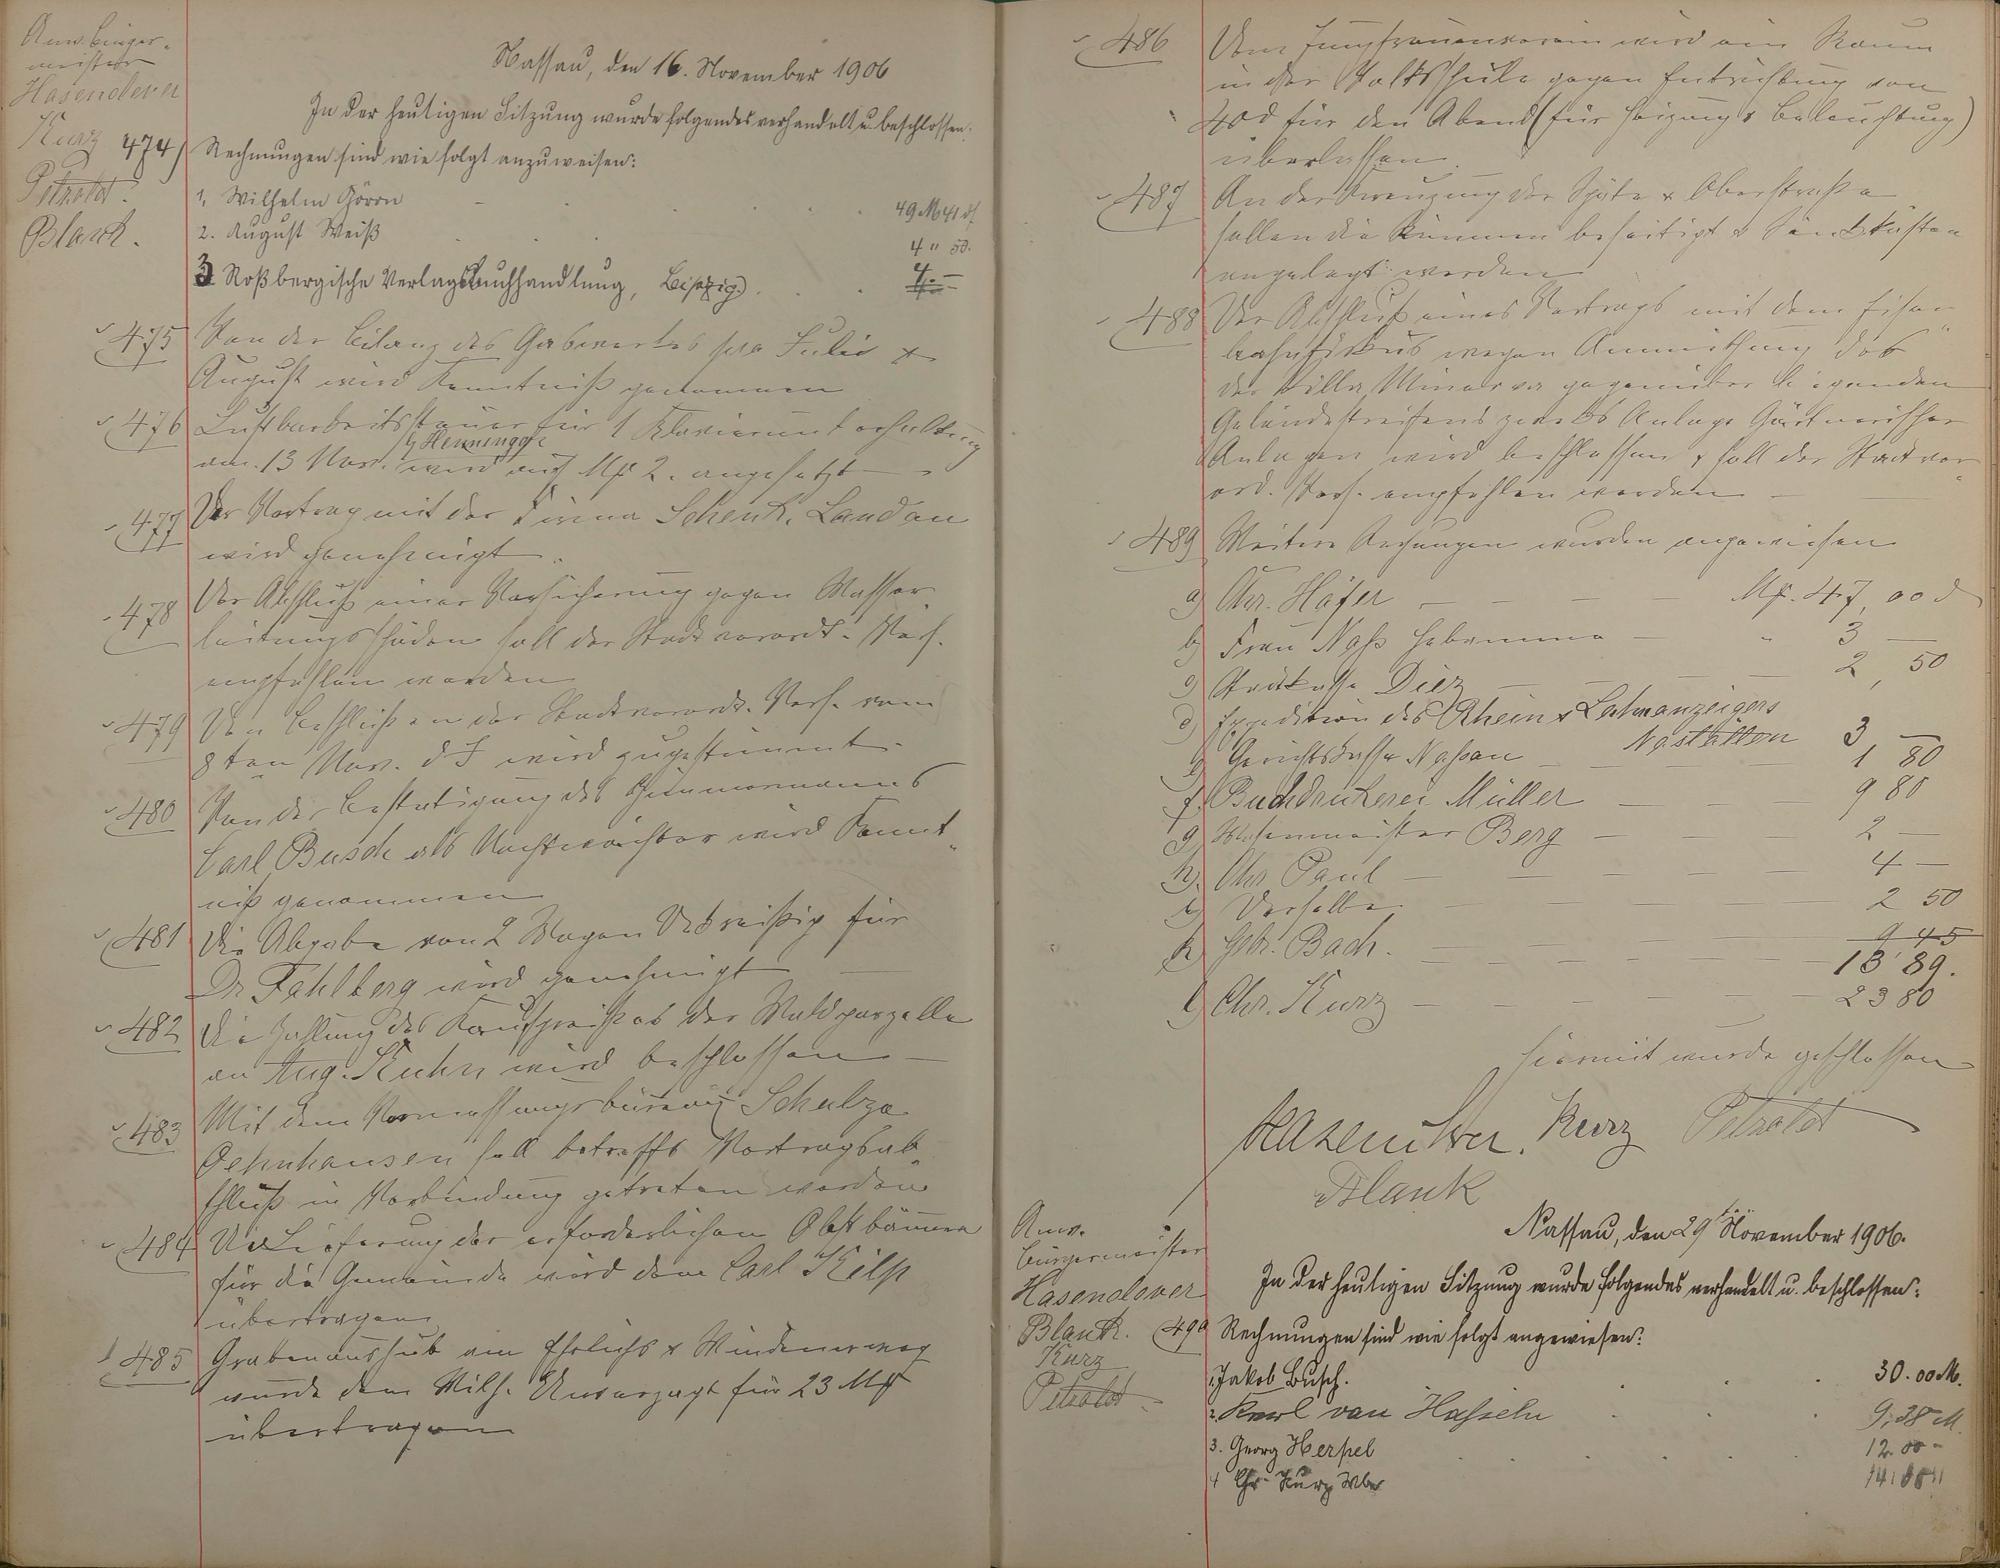 Anw. Bürger-
meister
Hasenclever
Kurz
Petzoldt.
Blank.
Nassau, den 16. November 1906
In der heutigen Sitzung wurde folgendes verhandelt u. beschlossen.
474) Rechnungen sind wie folgt anzuweisen:
1, Wilhelm 49 M 41 d
2. August Weiß 4 " 50.
3 Roßbergische Verlagsbuchhandlung, Leipzig. 4.-
475 Von der Bilanz des Gaswerkes pro Juli &
August wird Kenntniß genommen
476 Lustbarkeitssteuer für 1 Klavierunterhaltung
by Henninger
am 13 Nov. wird auf Mk 2. angesetzt
477 Der Vertrag mit der Firma Schenk, Landau
wird genehmigt.
478 Der Abschluß einer Versicherung gegen Wasser
leitungsschäden soll der Stadtverordt. Vers.
empfohlen werden
479 Den Beschlüssen der Stadtverordt. Vers. vom
8ten Nov. d J wird zugestimmt.
480 Von der Bestätigung des
Carl Busch als Nachtwächter wird Kennt
niß genommen
481 Die Abgabe von 2 Wagen Deckreißig für
Dr Fahlberg wird genehmigt
482 Die Zahlung des Kaufpreises der Waldparzelle
an Aug. Kuhn wird beschlossen
483 Mit dem Vermessungsbüreau Schulze
Oehnhausen soll betreffs Vertragsab
schluß in Verbindung getreten werden
484 Die Lieferung der erforderlichen Obstbäume
für die Gemeinde wird dem Carl Kilp
übertragen
485 Grabenaushub am Ehrlichs & Windenerweg
wurde dem Wilh. Unverzagt für 23 Mk
übertragen
486 Dem Jungfrauenverein wird ein Raum
in der Volksschule gegen Entrichtung von
40 d für den Abend (für Heizung & Beleuchtung)
überlassen.
487 An der Kreuzung der Späte & Oberstraße
sollen die Rinnen beseitigt & Sinkkasten
angelegt werden
488 Der Abschluß eines Vertrags mit dem Eisen
bahnfiskus wegen Anmiethung des
der Villa Minerva gegenüber liegenden
Geländestreifens zwecks Anlage Gärtnerischer
Anlagen wird beschlossen & soll der Stadtver
ord. Vers. empfohlen werden
489 Weitere Rechnungen wurden angewiesen
a) Chr. Häfer Mk. 47,00 d
b) Frau Naß Hebamme " 3 —
c) Diez 2,50
d) Expedition des Rhein & Lahnanzeigers
Nastätten 3 —
e) Gerichtskasse Nassau 1 80
f. Buchdruckerei Müller 9 80
g) Wasenmeister Berg 2 —
h). Chr Paul 4 —
i) Derselbe 2 50
9 45
k) Gebr. Bach. 13 89.
l) Chr. Kurz 23 80
Hiermit wurde geschlossen
Hasenclever. Kurz Petzoldt
Blank
Anw.
Bürgermeister
Hasenclever
Blank.
Kurz
Petzoldt
Nassau, den 29ten November 1906.
In der heutigen Sitzung wurde folgendes verhandelt u. beschlossen:
490 Rechnungen sind wie folgt angewiesen:
1. Jakob Busch. 30.00 M.
2. Karl von Hasseln 9,38 M.
3. Georg Herpel 12.00 "
4 Chr. Kurz Wwe